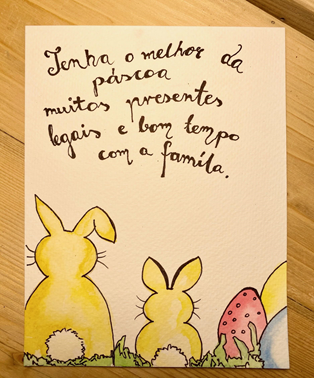 Tenha o melhor da
páscoa
muitos presentes
legais e bom tempo
com a famíla.